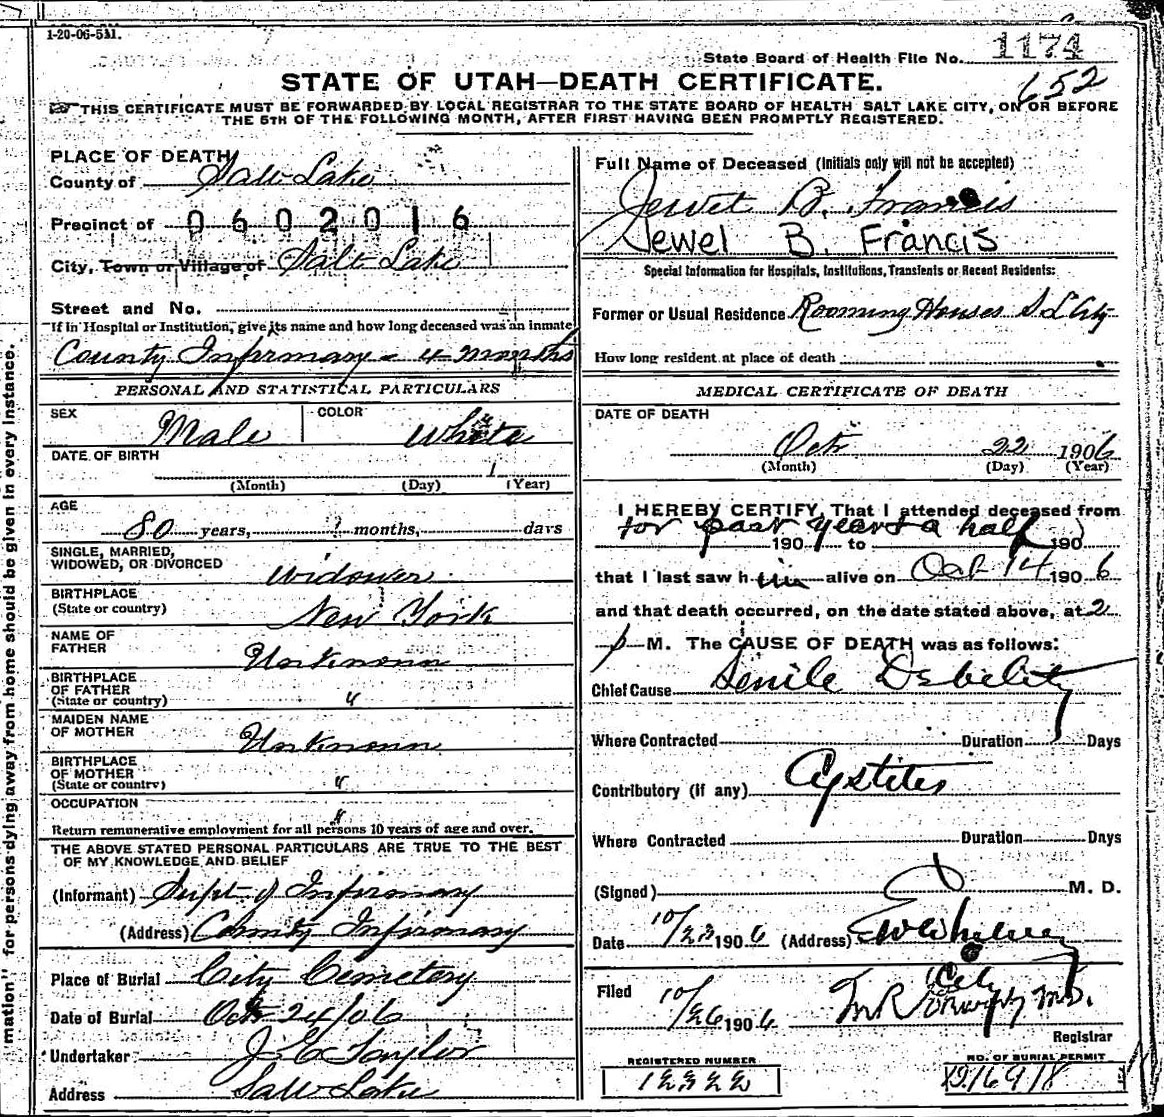 1-20-06-5M.
State Board of Health File No. 1174
652
STATE OF UTAH—DEATH CERTIFICATE.
THIS CERTIFICATE MUST BE FORWARDED BY LOCAL REGISTRAR TO THE STATE BOARD OF HEALTH SALT LAKE CITY, ON OR BEFORE
THE 5TH OF THE FOLLOWING MONTH, AFTER FIRST HAVING BEEN PROMPTLY REGISTERED.
PLACE OF DEATH
County of Salt Lake
Precinct of 0602016
City, Town or Village of Salt Lake
Street and No.
If in Hospital or Institution, give its name and how long deceased was an inmate
County Infirmary - 4 months
PERSONAL AND STATISTICAL PARTICULARS
SEX Male COLOR White
DATE OF BIRTH
(Month) (Day) (Year)
AGE
80 years, ? months, days
SINGLE, MARRIED,
WIDOWED, OR DIVORCED widower
BIRTHPLACE
(State or country) New York
NAME OF
FATHER Unknown
BIRTHPLACE
OF FATHER
(State or country) "
MAIDEN NAME
OF MOTHER Unknown
BIRTHPLACE
OF MOTHER
(State or country) "
OCCUPATION "
Return remunerative employment for all persons 10 years of age and over.
THE ABOVE STATED PERSONAL PARTICULARS ARE TRUE TO THE BEST
OF MY KNOWLEDGE AND BELIEF
(Informant) Supt. of Infirmary
(Address) County Infirmary
Place of Burial City Cemetery
Date of Burial Oct 24/06
Undertaker J E Taylor
Address Salt Lake
Full Name of Deceased (Initials only will not be accepted)
Jewet B. Francis
Jewel B. Francis
Special Information for Hospitals, Institutions, Transients or Recent Residents:
Former or Usual Residence Rooming Houses S L City
How long resident at place of death
MEDICAL CERTIFICATE OF DEATH
DATE OF DEATH
Oct 22 1906
(Month) (Day) (Year)
I HEREBY CERTIFY, That I attended deceased from
for past year & a half
190 to 190
that I last saw him alive on Oct 14 1906
and that death occurred, on the date stated above, at 2
p M. The CAUSE OF DEATH was as follows:
Chief Cause Senile Debility
Where Contracted Duration Days
Contributory (if any) Cystitis
Where Contracted Duration Days
(Signed) M. D.
Date 10/23 1906 (Address) E W Whitney
City
Filed 10/26 1906 M.D.
Registrar
REGISTERED NUMBER
12322
NO. OF BURIAL PERMIT
"mation" for persons dying away from home should be given in every instance.